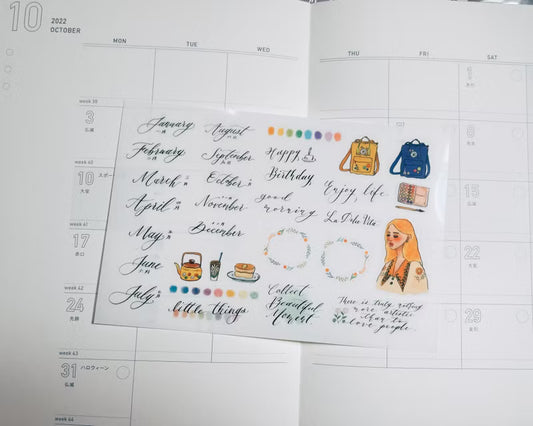 10
2022
OCTOBER
MON
TUE
WED
THU
FRI
SAT
week 39
1
友引
3
仏滅
week 40
10
大安
スポー
15
week 41
17
赤口
22
week 42
24
先勝
29
week 43
31
仏滅
ハロウィーン
week 44
January
一月
February
二月
March
三月
April
四月
May
五月
June
六月
July
七月
August
八月
September
九月
October
十月
November
December
Happy
Birthday
good
morning
Enjoy life
La Dolce Vita
little things
Collect
Beautiful
Moment
There is truly nothing
more artistic
than to
love people.